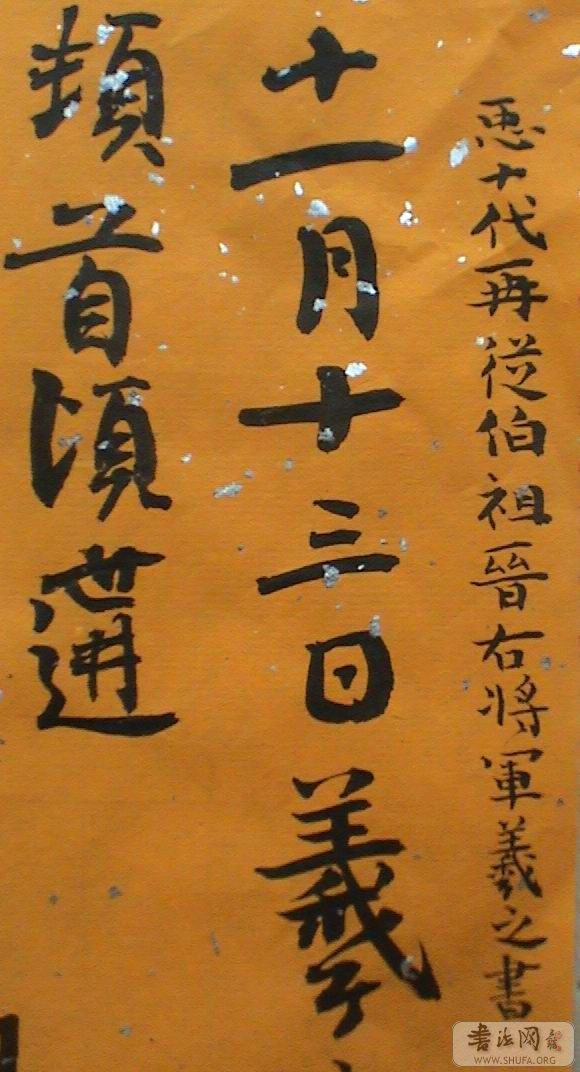 𢘑十代再從伯祖晉右將軍羲之書
十一月十三日羲
頓首頃遘
書法网
WWW.SHUFA.ORG